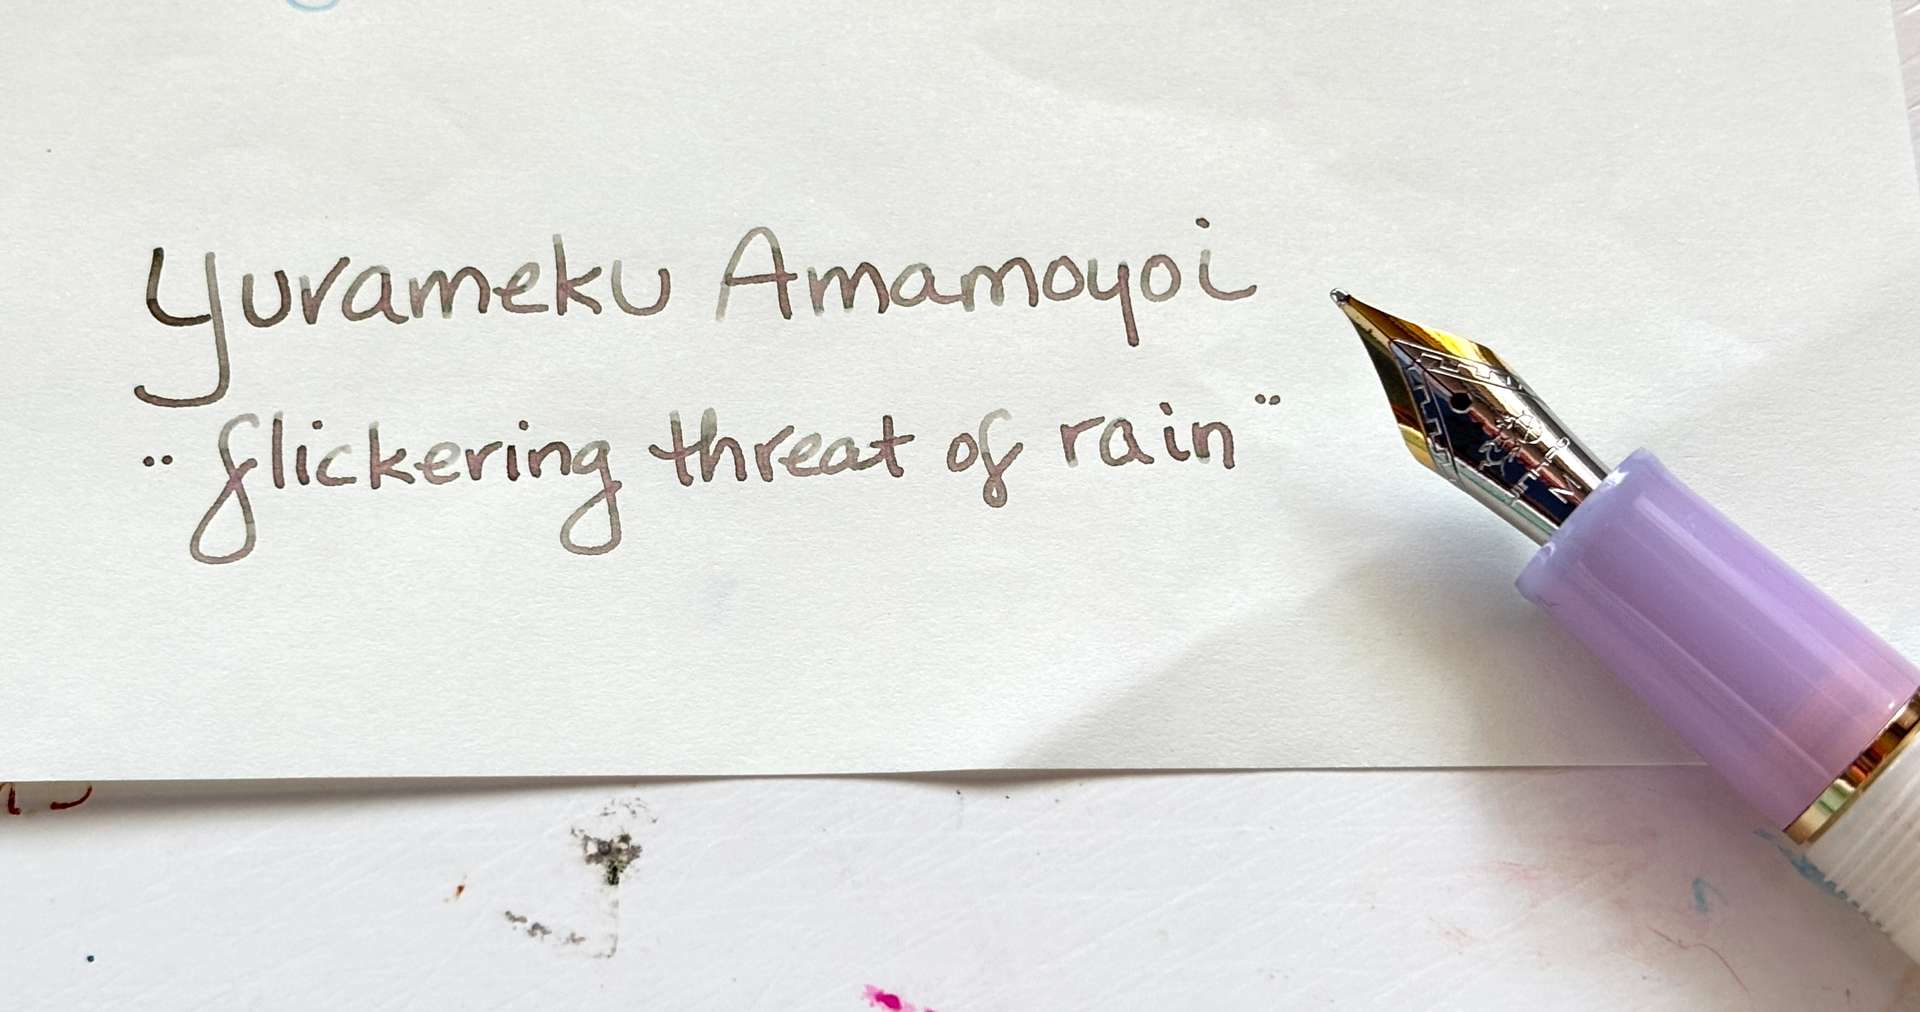 Yurameku Amamoyoi
"flickering threat of rain"
M